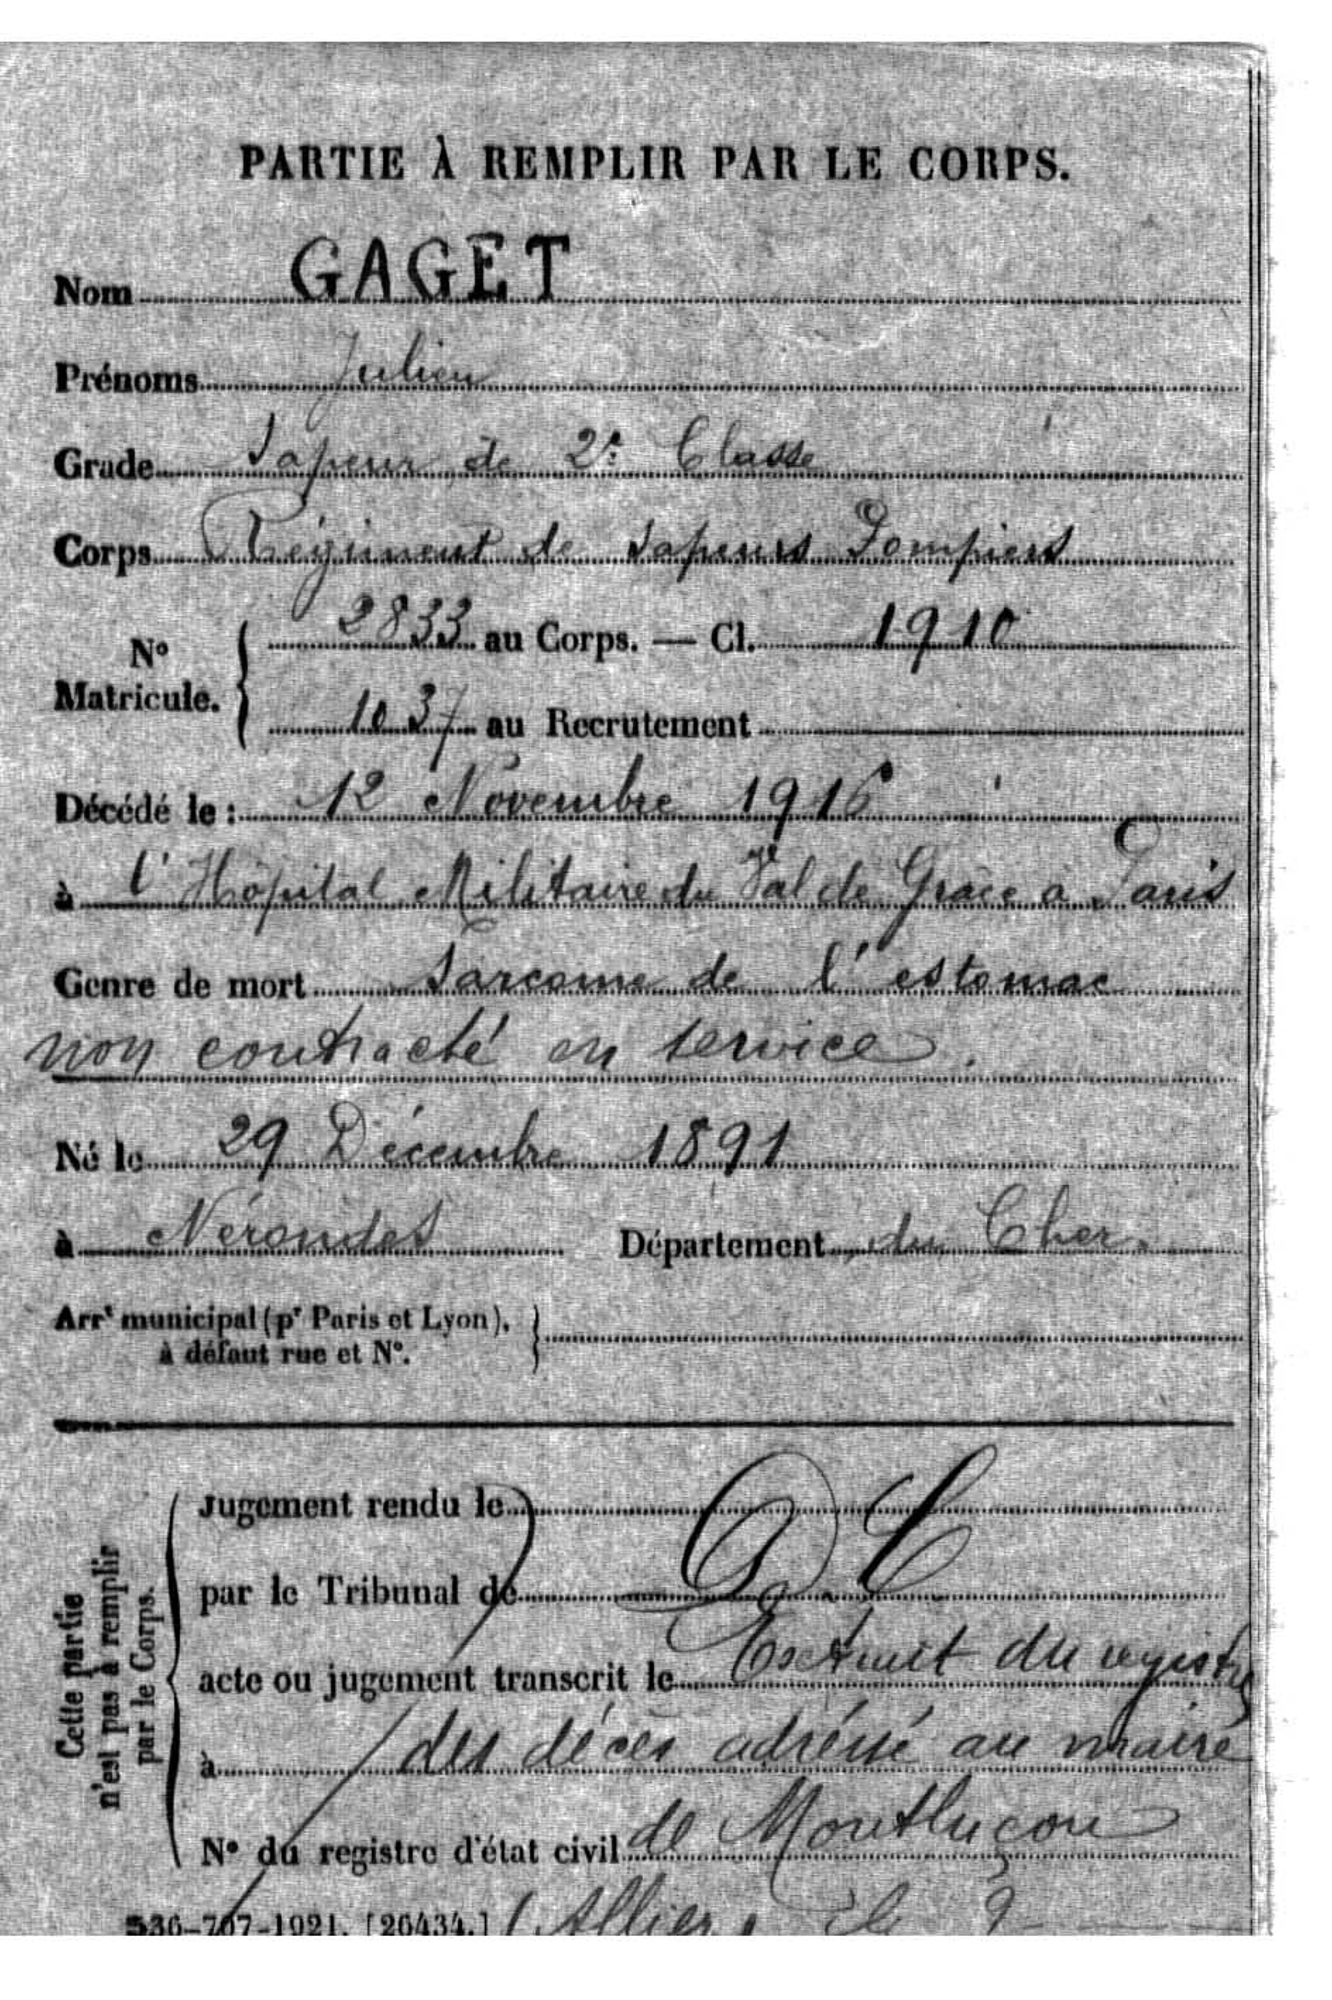 PARTIE À REMPLIR PAR LE CORPS.
Nom GAGET
Prénoms Julien
Grade Sapeur de 2e Classe
Corps Régiment de Sapeurs Pompiers
N° Matricule. { 2833 au Corps. — Cl. 1910
1037 au Recrutement
Décédé le : 12 Novembre 1916
à l'Hôpital Militaire du Val de Grâce à Paris
Genre de mort Sarcome de l'estomac
non contracté en service.
Né le 29 Décembre 1891
à Nérondes Département du Cher.
Arrt municipal (pr Paris et Lyon), }
à défaut rue et N°.
Cette partie
n'est pas à remplir
par le Corps.
Jugement rendu le
par le Tribunal de
acte ou jugement transcrit le Extrait du registre
à des décès adressé au maire
N° du registre d'état civil de Montluçon
536-707-1921. [26434.] (Allier, le 9